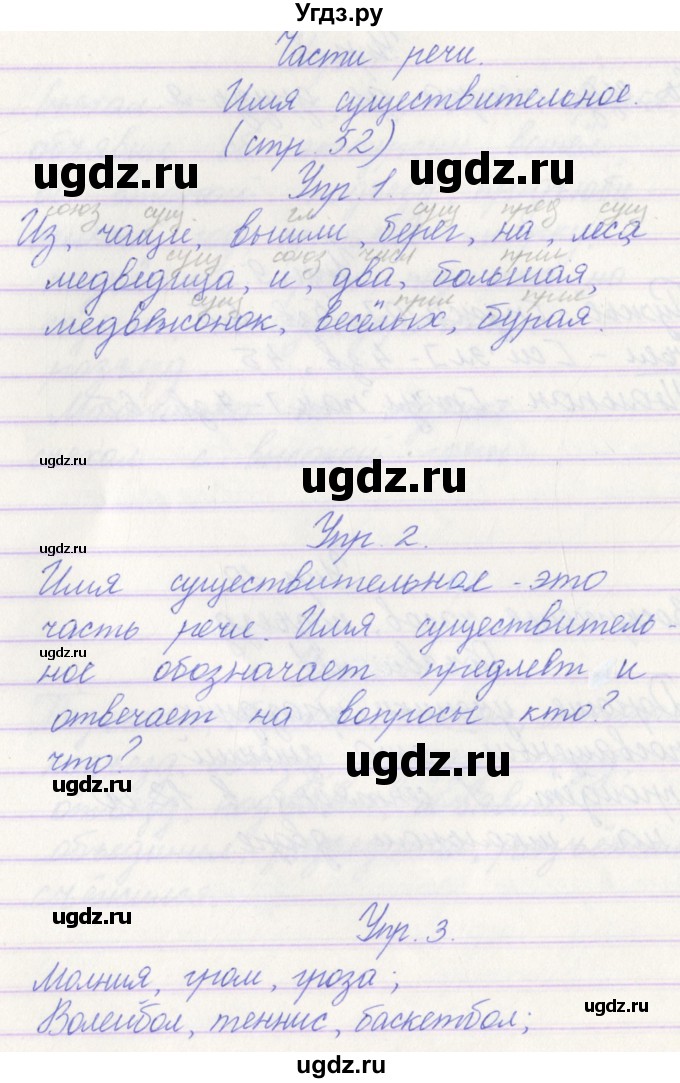 Угдз.ру
Части речи.
Имя существительное.
(стр. 52)
ugdz.ru
ugdz.ru
Упр. 1.
союз сущ. гл сущ пред сущ
Из, чащи, вышли, берег, на, леса
сущ союз числ прил.
медведица, и, два, большая,
сущ прил прил.
медвежонок, весёлых, бурая.
ugdz.ru
ugdz.ru
Упр. 2.
ugdz.ru
Имя существительное - это
часть речи. Имя существитель-
ugdz.ru
ное обозначает предмет и
отвечает на вопросы кто?
что?
ugdz.ru
ugdz.ru
ugdz.ru
Упр. 3.
Молния, гром, гроза;
ugdz.ru
Волейбол, теннис, баскетбол;
ugdz.ru